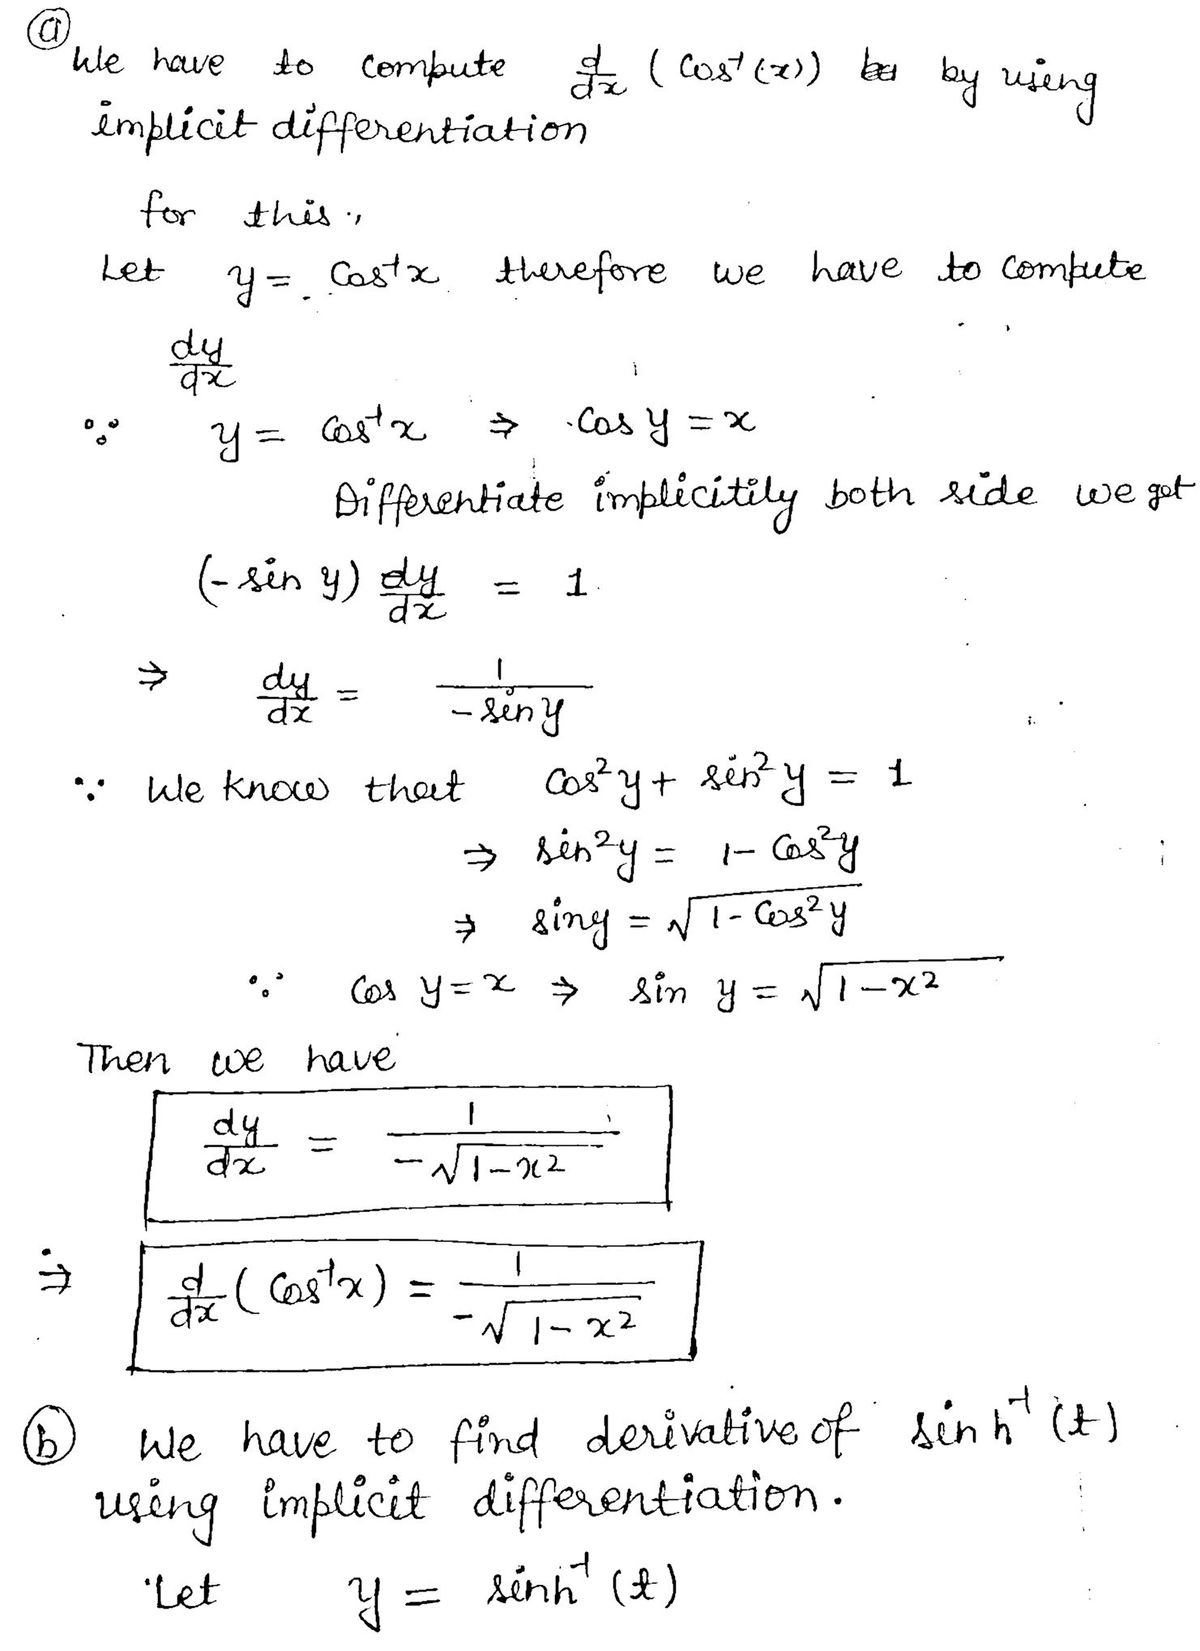 (a)
We have to compute d/dx (Cos⁻¹(x)) by using
implicit differentiation
for this,
Let y = Cos⁻¹x therefore we have to compute
dy/dx
∵ y = Cos⁻¹x ⇒ Cos y = x
Differentiate implicitily both side we get
(- sin y) dy/dx = 1
⇒ dy/dx = 1/(- sin y)
∵ We know that Cos²y + sin²y = 1
⇒ sin²y = 1 - Cos²y
⇒ siny = √(1 - Cos²y)
∵ Cos y = x ⇒ sin y = √(1 - x²)
Then we have
dy/dx = 1/(-√(1 - x²))
⇒ d/dx (Cos⁻¹x) = 1/(-√(1 - x²))
(b) We have to find derivative of sinh⁻¹(t)
using implicit differentiation.
Let y = sinh⁻¹(t)